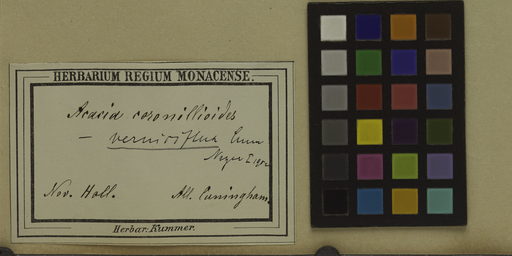 HERBARIUM REGIUM MONACENSE.
Acacia coronillioides
— verniciflua Cunn
Nov. Holl. All. Cuningham.
Herbar. Kummer.